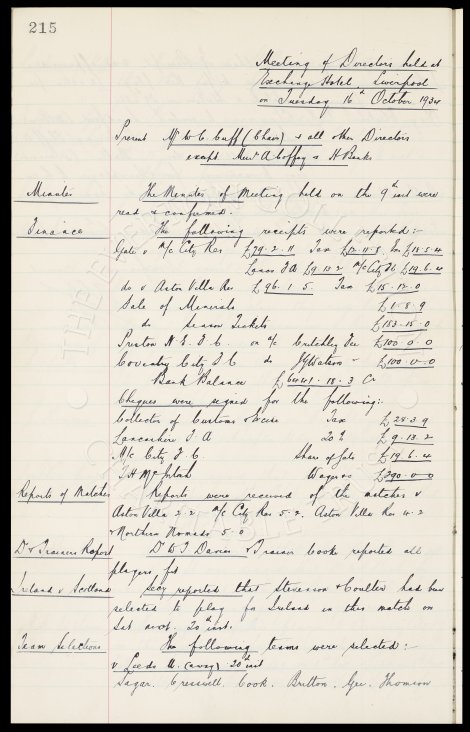 215
Meeting of Directors held at
Exchange Hotel Liverpool
on Tuesday 16th October 1934
Present Mr W. C. Cuff (Chair) & all other Directors
except Messrs A Coffey & H Banks
Minutes The Minutes of Meeting held on the 9th inst were
read & confirmed.
Finance The following receipts were reported:-
Gate v M/c City Res £79. 2. 11 Tax £12. 11. 8 £15. 5. 4
Lancs F A £9. 13. 2 M/c City £19. 6. 4
do v Aston Villa Res £96. 1. 5 Tax £15. 12. 0
Sale of Minerals £1. 8. 9
do Season Tickets £153. 15. 0
Preston N. E. F. C. on a/c Critchley Fee £100. 0. 0
Coventry City F C do J Watson £100. 0. 0
Bank Balance £6441. 18. 3 Cr
Cheques were signed for the following:-
Collector of Customs & Excise Tax £28. 3. 9
Lancashire F. A £9. 13. 2
M/c City F. C. Share of Gate £19. 6. 4
T H McIntosh Wages £390. 0. 0
Reports of Matches Reports were received of the matches v
Aston Villa 2. 2. M/c City Res 5. 2. Aston Villa Res 4. 2
& Northern Nomads 5. 0
Dr & Trainers Report Dr W J Davies & Trainer Cooke reported all
players fit
Ireland v Scotland Secy reported that Stevenson & Coulter had been
selected to play for Ireland in this match on
Sat next. 20th inst.
Team Selections The following teams were selected:-
v Leeds U. (away) 20th inst
Sagar. Cresswell. Cook. Britton. Gee. Thomson